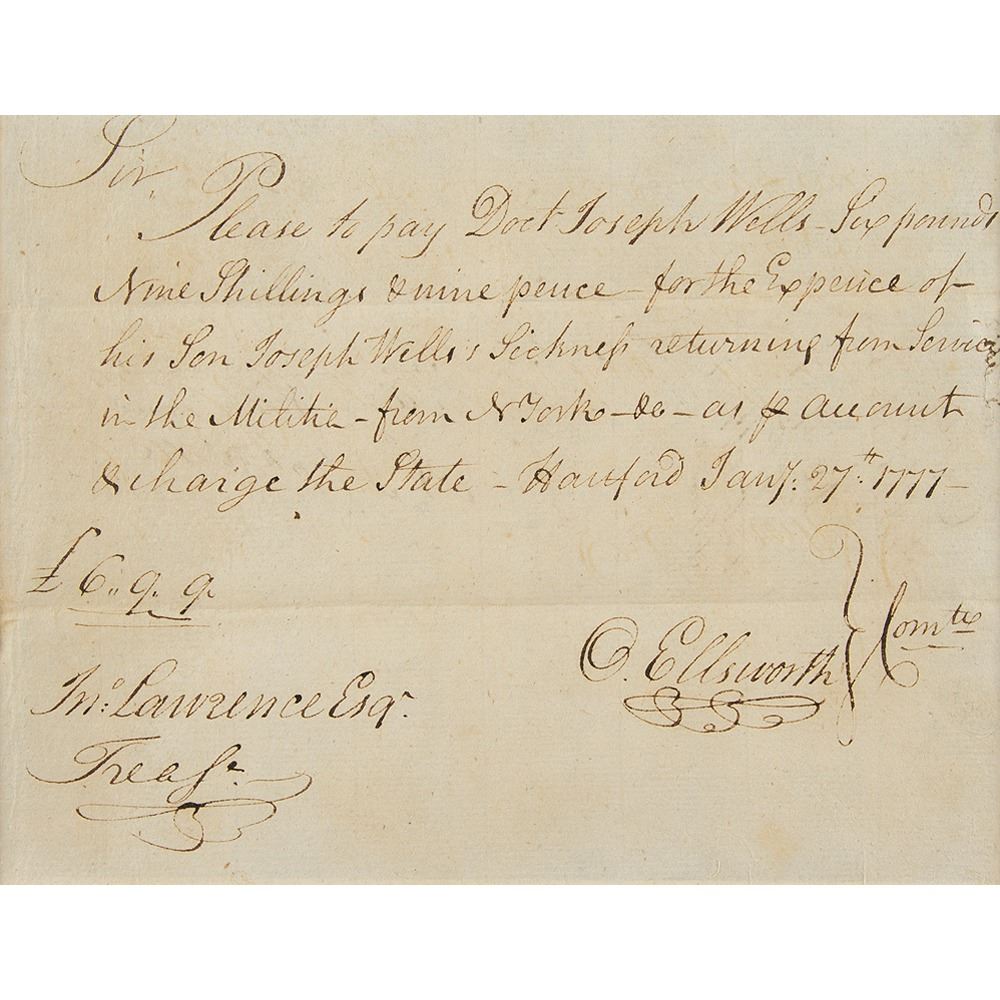 Sir,
Please to pay Doct Joseph Wells – Six pounds
Nine Shillings & nine pence – for the Expence of
his Son Joseph Wells's Sickness returning from Service
in the Militia – from N York – &c – as ⅌ account
& charge the State – Hartford Jany. 27th. 1777 –
£6.. 9. 9.
O. Ellsworth } Comtee
Jno. Lawrence Esqr.
Treasr.